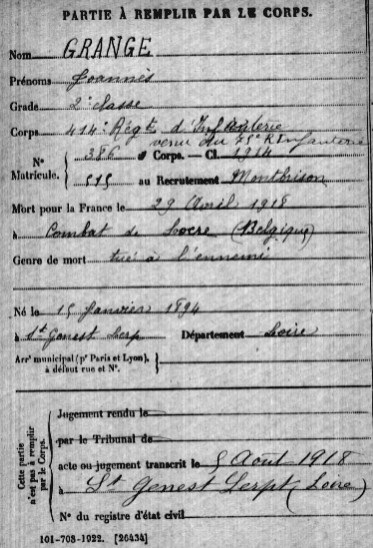 PARTIE À REMPLIR PAR LE CORPS.
Nom GRANGE
Prénoms Joannès
Grade 2e classe
Corps 414e Régt d'Infanterie
venu du 75e RInfanterie
N° Matricule. { 386 au Corps. — Cl. 1914
515 au Recrutement Montbrison
Mort pour la France le 29 Avril 1918
à Combat de Locre (Belgique)
Genre de mort tué à l'ennemi
Né le 15 Janvier 1894
à St Genest Lerp Département Loire
Arrt municipal (pr Paris et Lyon), à défaut rue et N°. {
Cette partie n'est pas à remplir par le Corps.
Jugement rendu le
par le Tribunal de
acte ou jugement transcrit le 5 Août 1918
à St Genest Lerpt (Loire)
N° du registre d'état civil
101-708-1922. [26434]